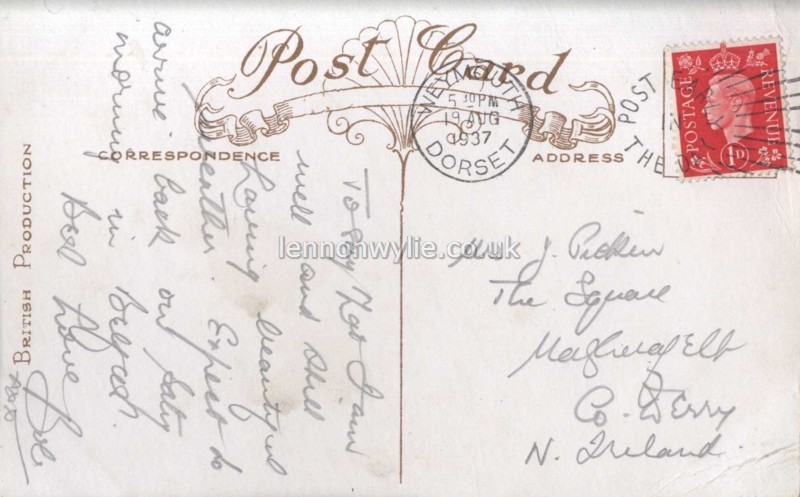 Post Card
CORRESPONDENCE
ADDRESS
BRITISH PRODUCTION
WEYMOUTH
5 30 PM
19 AUG
1937
DORSET
POST
THE
POSTAGE
REVENUE
1D
To say that I am
well and still
having beautiful
weather. Expect to
arrive back on Saty
morning in Belfast.
Best love
Mrs J. Picken
The Square
Maghera
Co. Derry
N. Ireland
lennonwylie.co.uk